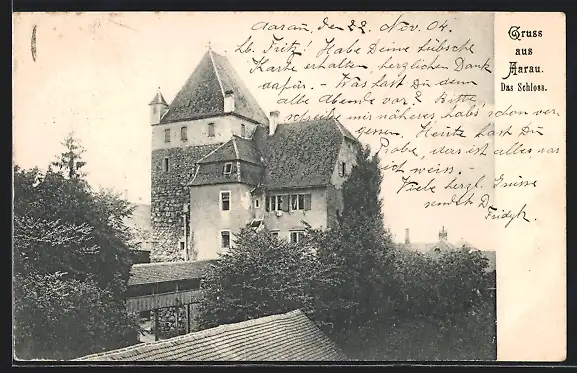 Aarau, den 22. Nov. 04.
Lb. Fritz! Habe Deine hübsche
Karte erhalten, herzlichen Dank
dafür. – Was hast Du denn
alle Abende vor? Bitte
schreibe mir näheres, hab's schon ver
gessen. Heute hast Du
Probe, das ist alles was
ich weiss. –
Viele herzl. Grüsse
sendet Dir
Gruss
aus
Aarau.
Das Schloss.